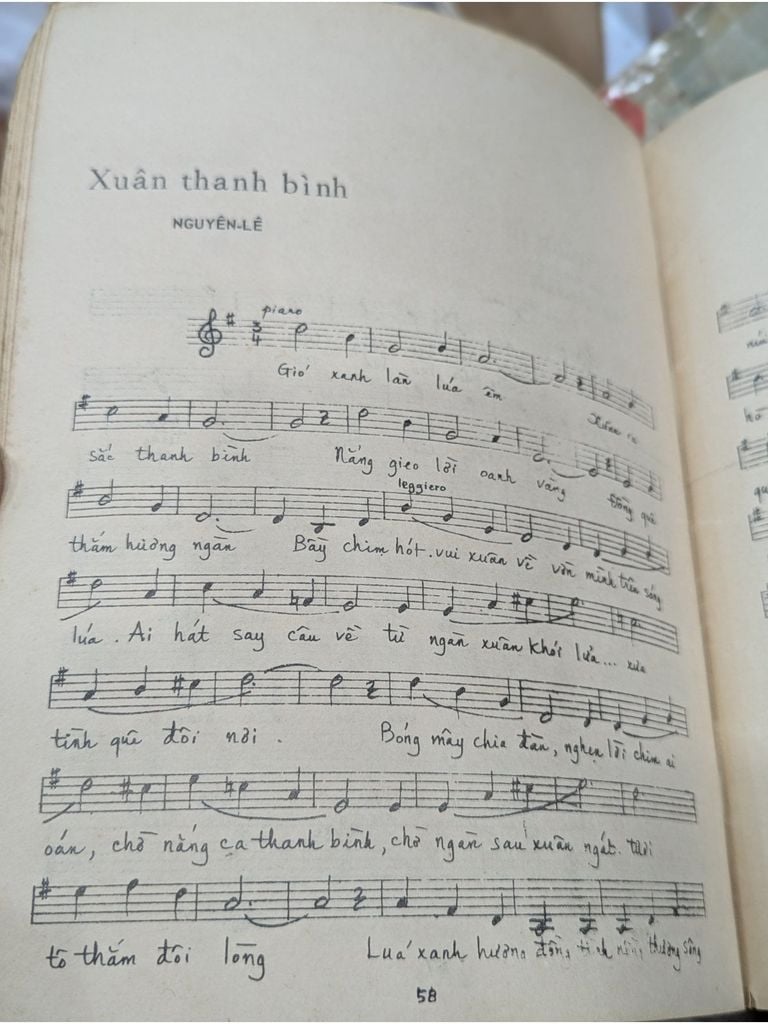 Xuân thanh bình
NGUYÊN-LÊ
piano
3
4
Gió xanh làn lúa êm Xuân ca
sắc thanh bình Nắng gieo lời oanh vàng Đồng quê
leggiero
thắm hường ngàn Bầy chim hót. vui xuân về vờn mình trên sóng
lúa. Ai hát say câu về từ ngàn xuân khói lửa... xưa
tình quê đôi nơi. Bóng mây chia đàn, nghẹn lời chim ai
oán, chờ nắng ca thanh bình, chờ ngàn sau xuân ngát. tươi
tô thắm đôi lòng Luá xanh hương đồng tình nồng thương sông
58